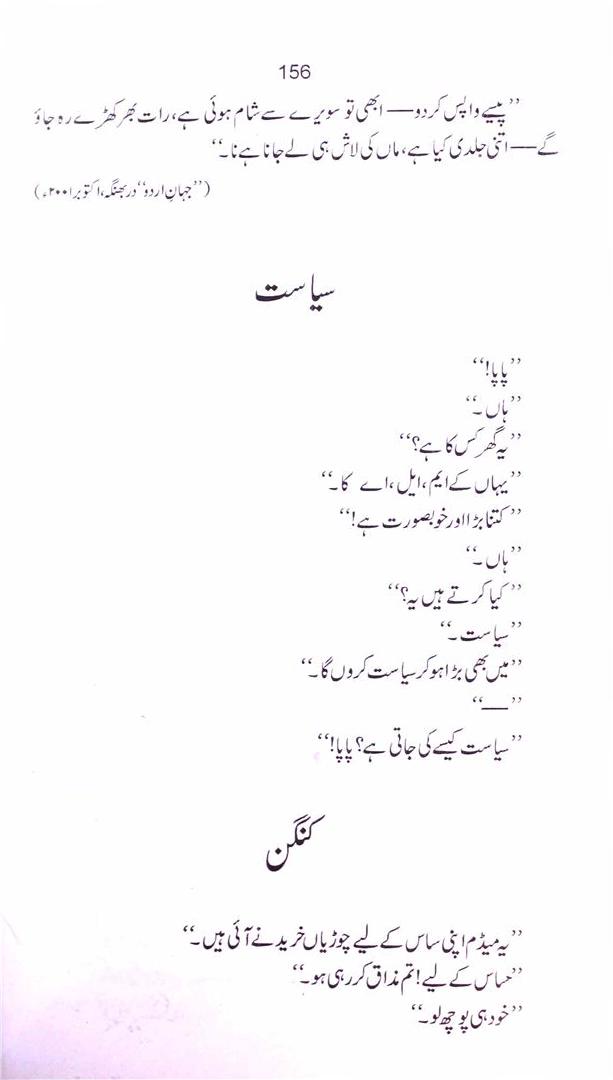 156
’’پیسے واپس کردو—— ابھی تو سویرے سے شام ہوئی ہے، رات بھر کھڑے رہ جاؤ
گے—— اتنی جلدی کیا ہے، ماں کی لاش ہی لے جانا ہے نا۔‘‘
(’’جہانِ اردو‘‘ دربھنگہ، اکتوبر ۲۰۰۱ء)
سیاست
’’پاپا!‘‘
’’ہاں۔‘‘
’’یہ گھر کس کا ہے؟‘‘
’’یہاں کے ایم، ایل، اے کا۔‘‘
’’کتنا بڑا اور خوبصورت ہے!‘‘
’’ہاں۔‘‘
’’کیا کرتے ہیں یہ؟‘‘
’’سیاست۔‘‘
’’میں بھی بڑا ہو کر سیاست کروں گا۔‘‘
’’——‘‘
’’سیاست کیسے کی جاتی ہے؟ پاپا!‘‘
کنگن
’’یہ میڈم اپنی ساس کے لیے چوڑیاں خریدنے آئی ہیں۔‘‘
’’ساس کے لیے! تم مذاق کر رہی ہو۔‘‘
’’خود ہی پوچھ لو۔‘‘